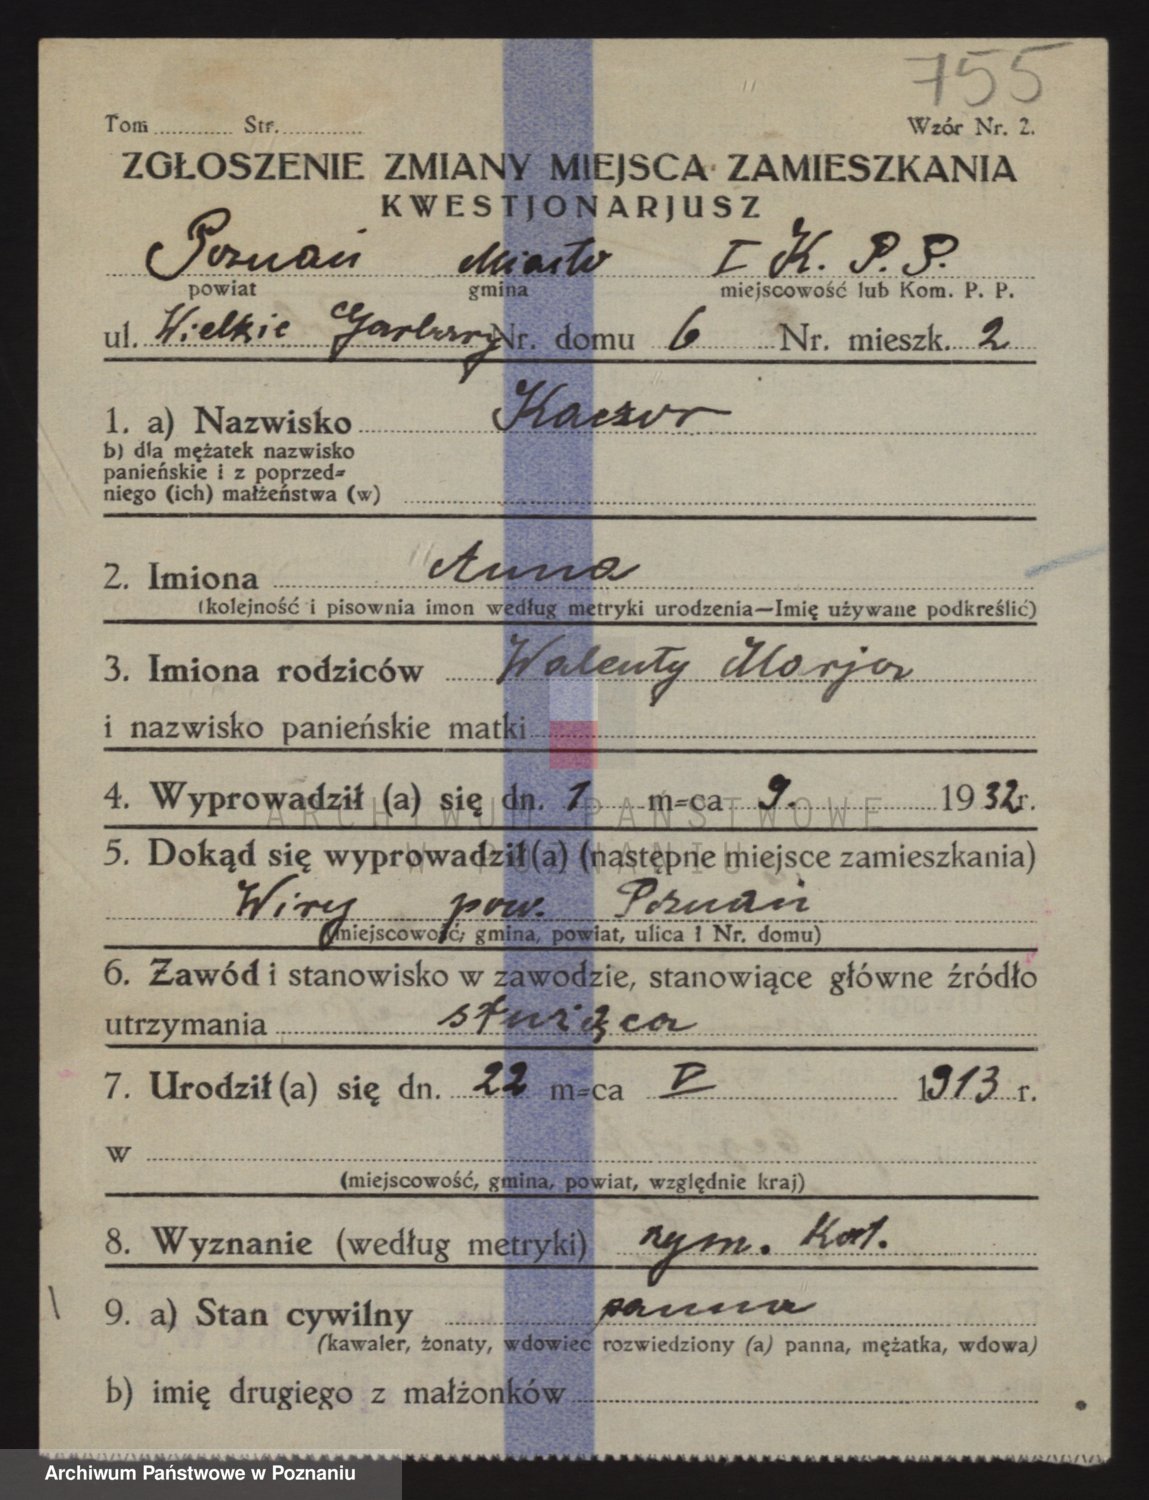 755
Tom Str. Wzór Nr. 2.
ZGŁOSZENIE ZMIANY MIEJSCA ZAMIESZKANIA
KWESTJONARJUSZ
Poznań Miasto I K. P. P.
powiat gmina miejscowość lub Kom. P. P.
ul. Wielkie Garbary Nr. domu 6 Nr. mieszk. 2
1. a) Nazwisko Kaczor
b) dla mężatek nazwisko
panieńskie i z poprzed=
niego (ich) małżeństwa (w)
2. Imiona Anna
(kolejność i pisownia imon według metryki urodzenia—Imię używane podkreślić)
3. Imiona rodziców Walenty Marja
i nazwisko panieńskie matki
4. Wyprowadził (a) się dn. 1 m=ca 9. 1932 r.
ARCHIWUM PAŃSTWOWE
W POZNANIU
5. Dokąd się wyprowadził(a) (następne miejsce zamieszkania)
Wiry pow. Poznań
(miejscowość, gmina, powiat, ulica i Nr. domu)
6. Zawód i stanowisko w zawodzie, stanowiące główne źródło
utrzymania służąca
7. Urodził (a) się dn. 22 m=ca V 1913 r.
w
(miejscowość, gmina, powiat, względnie kraj)
8. Wyznanie (według metryki) rzym. Kat.
9. a) Stan cywilny panna
(kawaler, żonaty, wdowiec rozwiedziony (a) panna, mężatka, wdowa)
b) imię drugiego z małżonków
Archiwum Państwowe w Poznaniu